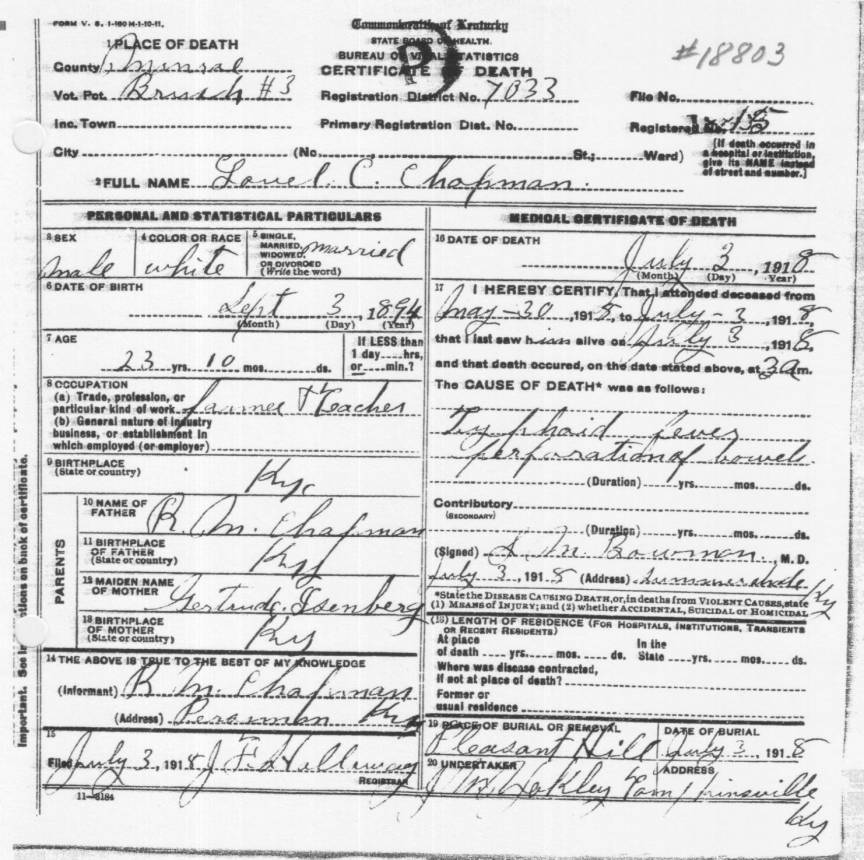 FORM V. S. 1-150 M-1-10-11.
Commonwealth of Kentucky
STATE BOARD OF HEALTH.
BUREAU OF VITAL STATISTICS
CERTIFICATE OF DEATH
#18803
1 PLACE OF DEATH
County Monroe
Vot. Pct. Brush #3
Registration District No. 7033
File No.
Inc. Town
Primary Registration Dist. No.
Registered No.
City (No. St.; Ward)
[If death occurred in a hospital or institution, give its NAME instead of street and number.]
2 FULL NAME Lovel C. Chapman.
PERSONAL AND STATISTICAL PARTICULARS
3 SEX male
4 COLOR OR RACE white
5 SINGLE, MARRIED, WIDOWED, OR DIVORCED (Write the word) married
6 DATE OF BIRTH
Sept 3, 1894
(Month) (Day) (Year)
7 AGE
23 yrs. 10 mos. ds.
If LESS than 1 day hrs. or min.?
8 OCCUPATION
(a) Trade, profession, or
particular kind of work farmer & teacher
(b) General nature of industry
business, or establishment in
which employed (or employer)
9 BIRTHPLACE
(State or country) Ky.
PARENTS
10 NAME OF FATHER R. M. Chapman
11 BIRTHPLACE OF FATHER (State or country) Ky
12 MAIDEN NAME OF MOTHER Gertrude Isenberg
13 BIRTHPLACE OF MOTHER (State or country) Ky
14 THE ABOVE IS TRUE TO THE BEST OF MY KNOWLEDGE
(Informant) R. M. Chapman
(Address) Persimmon Ky
15
Filed July 3, 1918
REGISTRAR
11—3184
MEDICAL CERTIFICATE OF DEATH
16 DATE OF DEATH
July 3, 1918
(Month) (Day) (Year)
17 I HEREBY CERTIFY, That I attended deceased from
May-30, 1918, to July-3, 1918,
that I last saw him alive on July 3, 1918,
and that death occured, on the date stated above, at 3 a m.
The CAUSE OF DEATH* was as follows:
Typhoid fever
perforation of bowels
(Duration) yrs. mos. ds.
Contributory
(SECONDARY)
(Duration) yrs. mos. ds.
(Signed) Bowman., M. D.
July 3, 1918 (Address) Ky
*State the DISEASE CAUSING DEATH, or, in deaths from VIOLENT CAUSES, state
(1) MEANS OF INJURY; and (2) whether ACCIDENTAL, SUICIDAL or HOMICIDAL
(18) LENGTH OF RESIDENCE (FOR HOSPITALS, INSTITUTIONS, TRANSIENTS
OR RECENT RESIDENTS)
At place of death yrs. mos. ds. In the State yrs. mos. ds.
Where was disease contracted,
if not at place of death?
Former or
usual residence
19 PLACE OF BURIAL OR REMOVAL
Pleasant Hill
DATE OF BURIAL
July 3, 1918
20 UNDERTAKER
ADDRESS
Tompkinsville
Ky